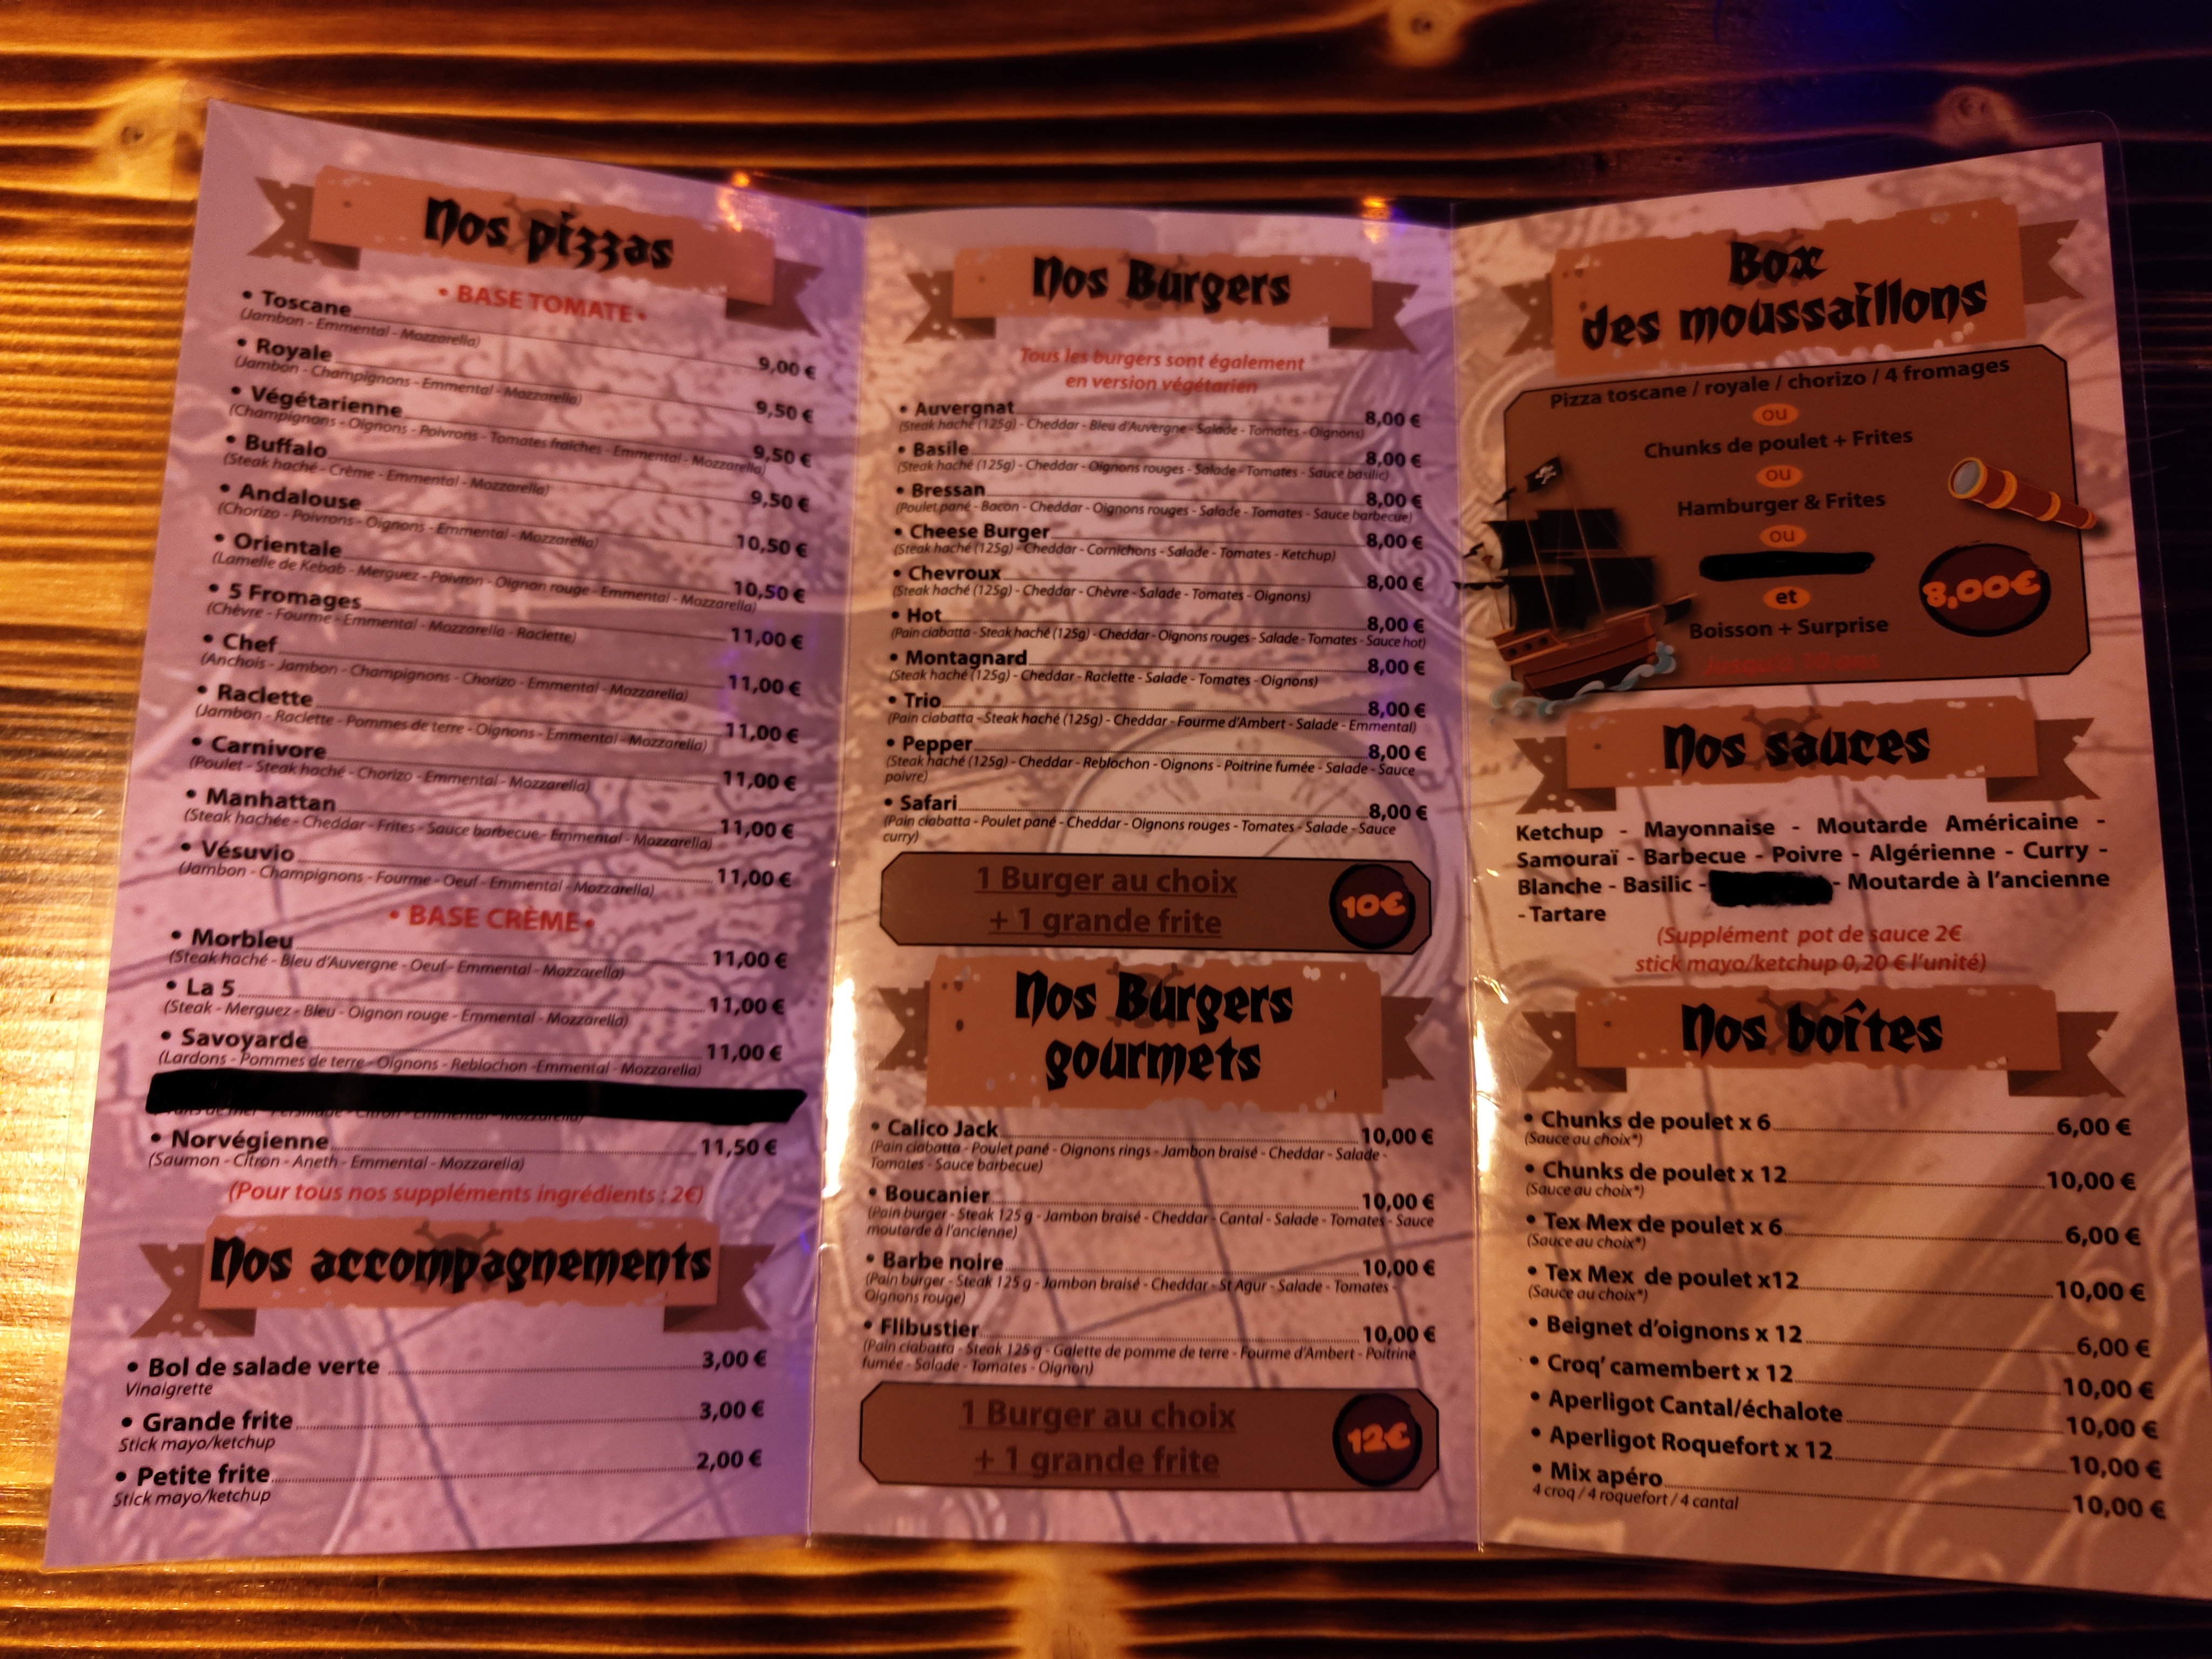 Nos pizzas
• BASE TOMATE •
• Toscane 9,00 €
(Jambon - Emmental - Mozzarella)
• Royale 9,50 €
(Jambon - Champignons - Emmental - Mozzarella)
• Végétarienne 9,50 €
(Champignons - Oignons - Poivrons - Tomates fraîches - Emmental - Mozzarella)
• Buffalo 9,50 €
(Steak haché - Crème - Emmental - Mozzarella)
• Andalouse 10,50 €
(Chorizo - Poivrons - Oignons - Emmental - Mozzarella)
• Orientale 10,50 €
(Lamelle de Kebab - Merguez - Poivron - Oignon rouge - Emmental - Mozzarella)
• 5 Fromages 11,00 €
(Chèvre - Fourme - Emmental - Mozzarella - Raclette)
• Chef 11,00 €
(Anchois - Jambon - Champignons - Chorizo - Emmental - Mozzarella)
• Raclette 11,00 €
(Jambon - Raclette - Pommes de terre - Oignons - Emmental - Mozzarella)
• Carnivore 11,00 €
(Poulet - Steak haché - Chorizo - Emmental - Mozzarella)
• Manhattan 11,00 €
(Steak hachée - Cheddar - Frites - Sauce barbecue - Emmental - Mozzarella)
• Vésuvio 11,00 €
(Jambon - Champignons - Fourme - Oeuf - Emmental - Mozzarella)
• BASE CRÈME •
• Morbleu 11,00 €
(Steak haché - Bleu d'Auvergne - Oeuf - Emmental - Mozzarella)
• La 5 11,00 €
(Steak - Merguez - Bleu - Oignon rouge - Emmental - Mozzarella)
• Savoyarde 11,00 €
(Lardons - Pommes de terre - Oignons - Reblochon -Emmental - Mozzarella)
• Norvégienne 11,50 €
(Saumon - Citron - Aneth - Emmental - Mozzarella)
(Pour tous nos suppléments ingrédients : 2€)
Nos accompagnements
• Bol de salade verte 3,00 €
Vinaigrette
• Grande frite 3,00 €
Stick mayo/ketchup
• Petite frite 2,00 €
Stick mayo/ketchup
Nos Burgers
Tous les burgers sont également
en version végétarien
• Auvergnat 8,00 €
(Steak haché (125g) - Cheddar - Bleu d'Auvergne - Salade - Tomates - Oignons)
• Basile 8,00 €
(Steak haché (125g) - Cheddar - Oignons rouges - Salade - Tomates - Sauce basilic)
• Bressan 8,00 €
(Poulet pané - Bacon - Cheddar - Oignons rouges - Salade - Tomates - Sauce barbecue)
• Cheese Burger 8,00 €
(Steak haché (125g) - Cheddar - Cornichons - Salade - Tomates - Ketchup)
• Chevroux 8,00 €
(Steak haché (125g) - Cheddar - Chèvre - Salade - Tomates - Oignons)
• Hot 8,00 €
(Pain ciabatta - Steak haché (125g) - Cheddar - Oignons rouges - Salade - Tomates - Sauce hot)
• Montagnard 8,00 €
(Steak haché (125g) - Cheddar - Raclette - Salade - Tomates - Oignons)
• Trio 8,00 €
(Pain ciabatta - Steak haché (125g) - Cheddar - Fourme d'Ambert - Salade - Emmental)
• Pepper 8,00 €
(Steak haché (125g) - Cheddar - Reblochon - Oignons - Poitrine fumée - Salade - Sauce
poivre)
• Safari 8,00 €
(Pain ciabatta - Poulet pané - Cheddar - Oignons rouges - Tomates - Salade - Sauce
curry)
1 Burger au choix
+ 1 grande frite
10€
Nos Burgers
gourmets
• Calico Jack 10,00 €
(Pain ciabatta - Poulet pané - Oignons rings - Jambon braisé - Cheddar - Salade -
Tomates - Sauce barbecue)
• Boucanier 10,00 €
(Pain burger - Steak 125 g - Jambon braisé - Cheddar - Cantal - Salade - Tomates - Sauce
moutarde à l'ancienne)
• Barbe noire 10,00 €
(Pain burger - Steak 125 g - Jambon braisé - Cheddar - St Agur - Salade - Tomates -
Oignons rouge)
• Flibustier 10,00 €
(Pain ciabatta - Steak 125 g - Galette de pomme de terre - Fourme d'Ambert - Poitrine
fumée - Salade - Tomates - Oignon)
1 Burger au choix
+ 1 grande frite
12€
Box
des moussaillons
Pizza toscane / royale / chorizo / 4 fromages
ou
Chunks de poulet + Frites
ou
Hamburger & Frites
ou
et
Boisson + Surprise
8,00€
Nos sauces
Ketchup - Mayonnaise - Moutarde Américaine -
Samouraï - Barbecue - Poivre - Algérienne - Curry -
Blanche - Basilic - - Moutarde à l'ancienne
- Tartare
(Supplément pot de sauce 2€
stick mayo/ketchup 0,20 € l'unité)
Nos boîtes
• Chunks de poulet x 6 6,00 €
(Sauce au choix*)
• Chunks de poulet x 12 10,00 €
(Sauce au choix*)
• Tex Mex de poulet x 6 6,00 €
(Sauce au choix*)
• Tex Mex de poulet x12 10,00 €
(Sauce au choix*)
• Beignet d'oignons x 12 6,00 €
• Croq' camembert x 12 10,00 €
• Aperligot Cantal/échalote 10,00 €
• Aperligot Roquefort x 12 10,00 €
• Mix apéro 10,00 €
4 croq / 4 roquefort / 4 cantal